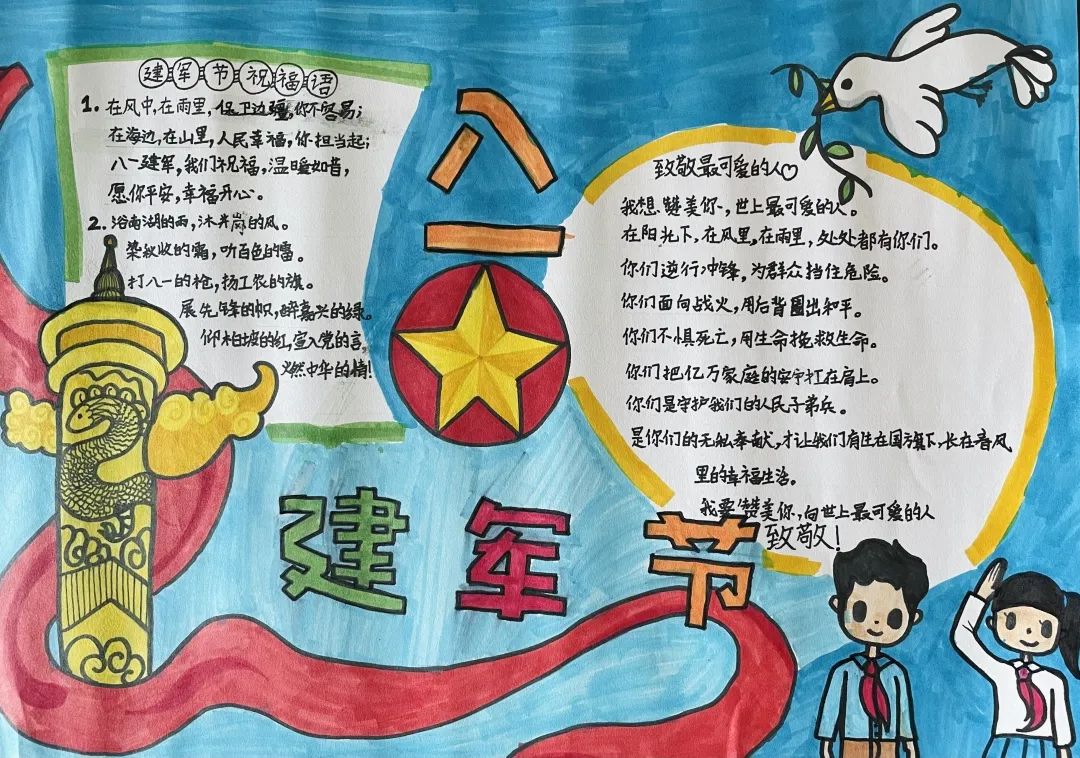 建军节祝福语
1. 在风中,在雨里,保卫边疆,你不容易;
在海边,在山里,人民幸福,你担当起;
八一建军,我们祝福,温暖如昔,
愿你平安,幸福开心。
2. 浴南湖的雨,沐井岗的风。
染秋收的霜,听百色的雷。
打八一的枪,扬工农的旗。
展先锋的帜,醉嘉兴的绿。
仰柏坡的红,宣入党的言,
火燃中华的情!
八一
建军节
致敬最可爱的人
我想赞美你,世上最可爱的人。
在阳光下,在风里,在雨里,处处都有你们。
你们逆行冲锋,为群众挡住危险。
你们面向战火,用后背圈出和平。
你们不惧死亡,用生命挽救生命。
你们把亿万家庭的安宁扛在肩上。
你们是守护我们的人民子弟兵。
是你们的无私奉献,才让我们有生在国旗下,长在春风
里的幸福生活。
我要赞美你,向世上最可爱的人
致敬!